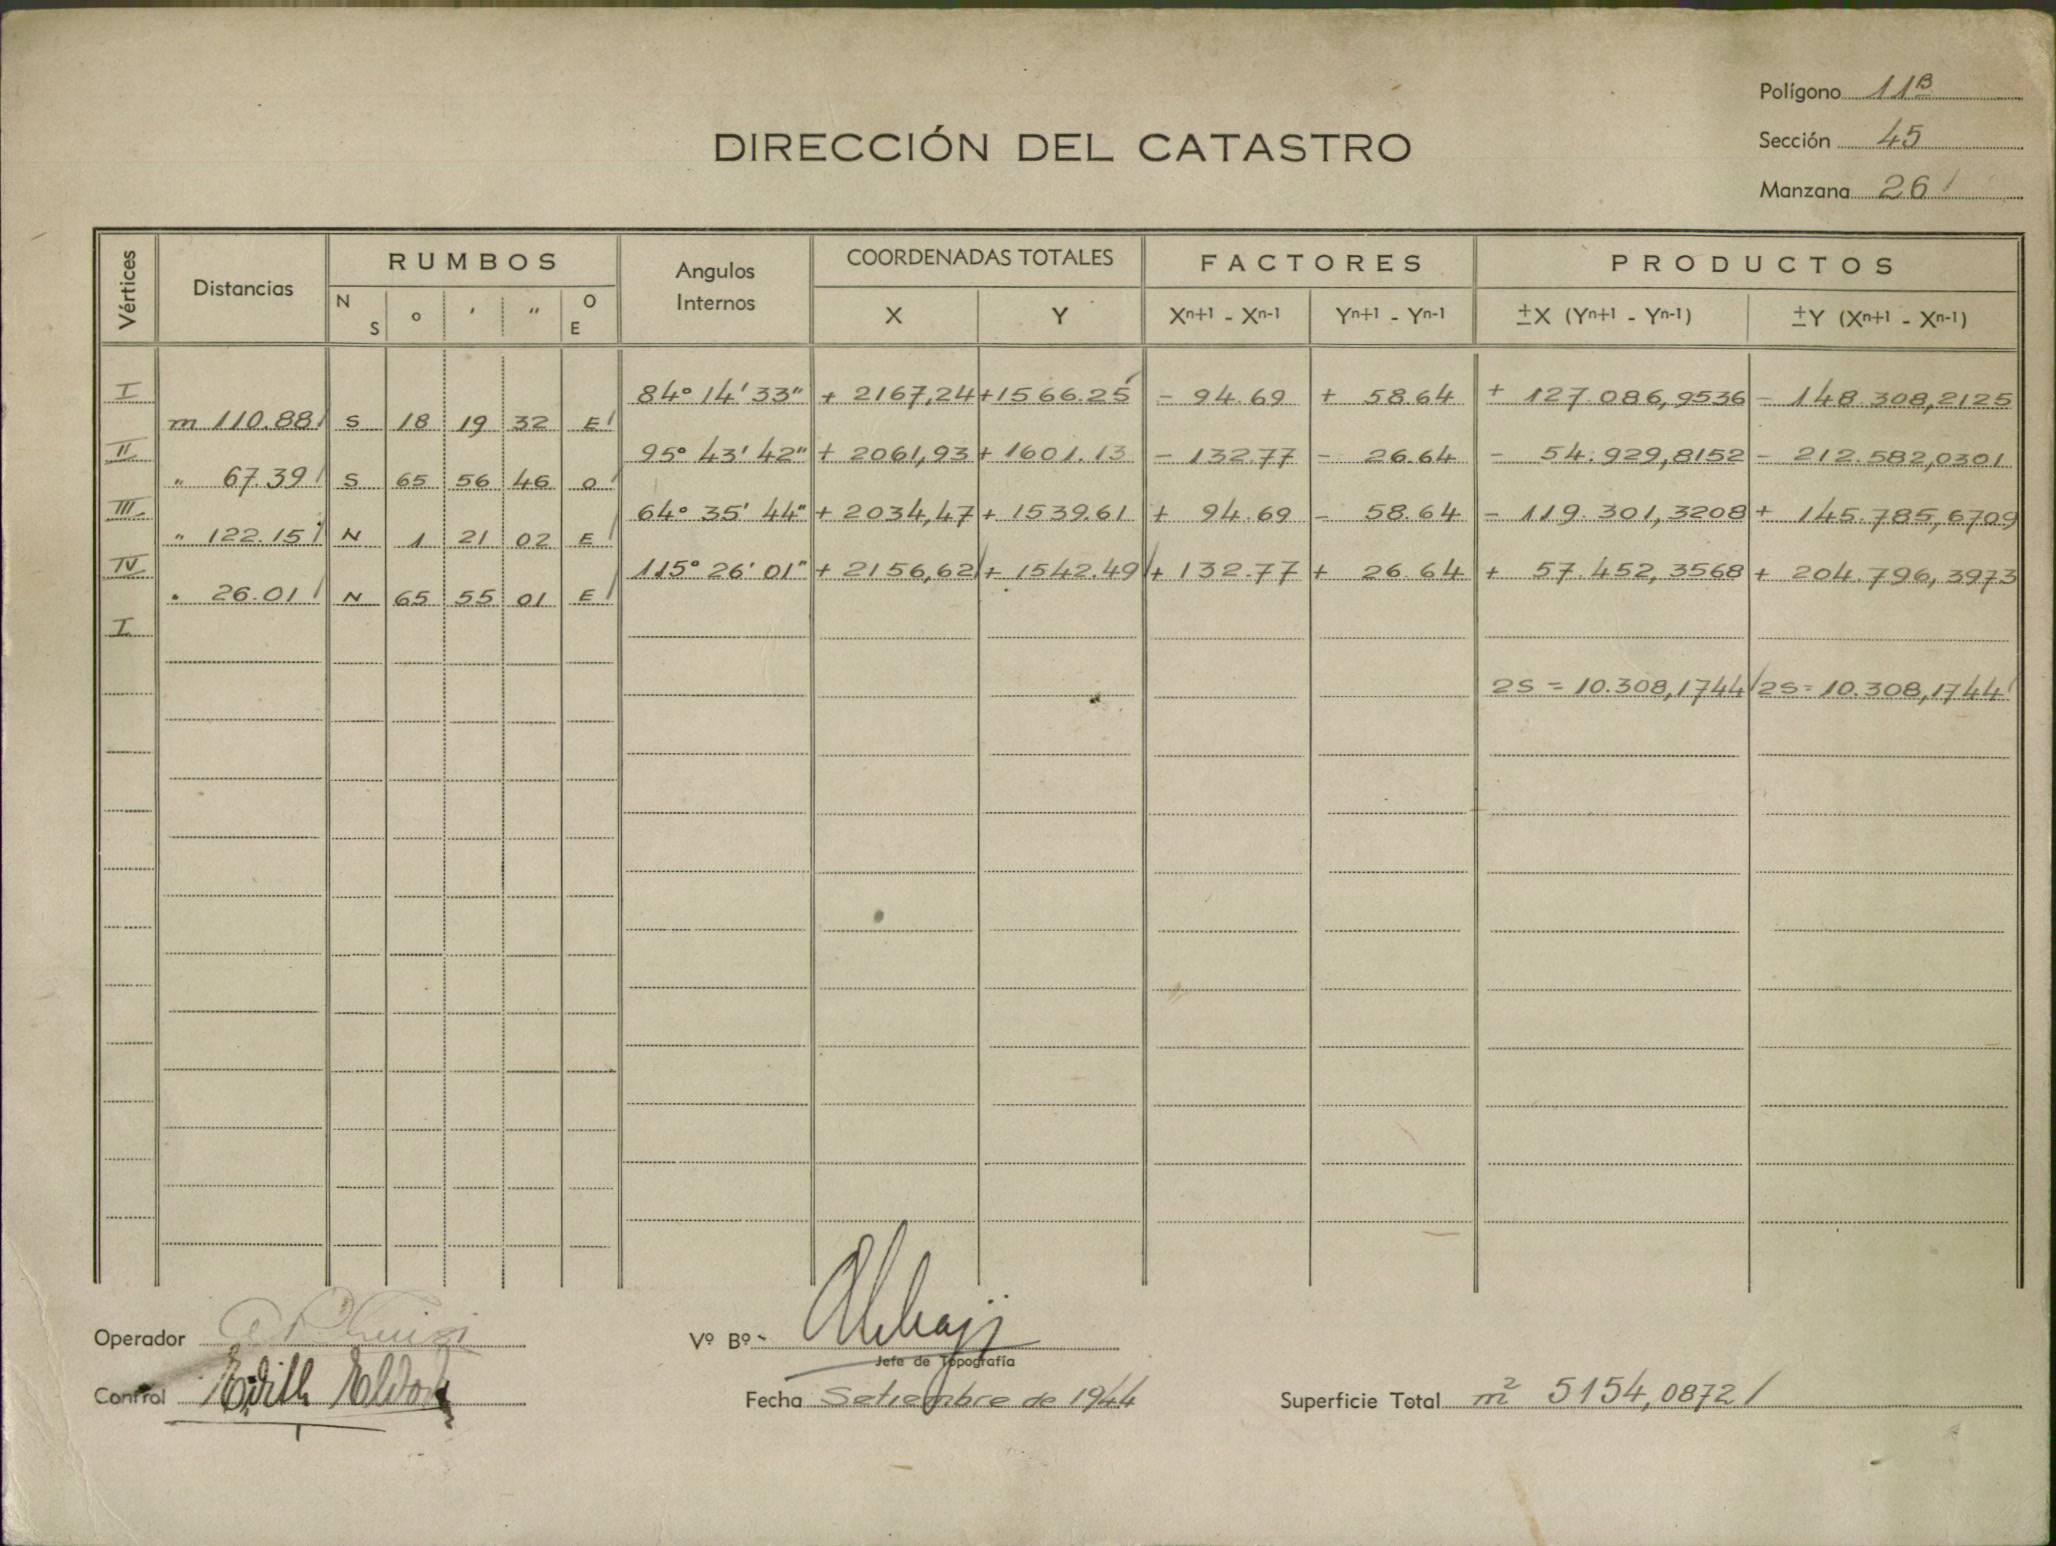 Polígono 11B
Sección 45
Manzana 26
DIRECCIÓN DEL CATASTRO
Vértices Distancias RUMBOS Angulos Internos COORDENADAS TOTALES FACTORES PRODUCTOS
N S ° ' " O E X Y Xn+1 - Xn-1 Yn+1 - Yn-1 ±X (Yn+1 - Yn-1) ±Y (Xn+1 - Xn-1)
I 84° 14' 33" + 2167,24 + 1566.25 - 94.69 + 58.64 + 127.086,9536 - 148.308,2125
m 110.88 S 18 19 32 E
II 95° 43' 42" + 2061,93 + 1601.13 - 132.77 - 26.64 - 54.929,8152 - 212.582,0301
" 67.39 S 65 56 46 O
III 64° 35' 44" + 2034,47 + 1539.61 + 94.69 - 58.64 - 119.301,3208 + 145.785,6709
" 122.15 N 1 21 02 E
IV 115° 26' 01" + 2156,62 + 1542.49 + 132.77 + 26.64 + 57.452,3568 + 204.796,3973
" 26.01 N 65 55 01 E
I
2S = 10.308,1744 2S = 10.308,1744
Operador
Vº Bº
Jefe de Topografía
Control Edith
Fecha Setiembre de 1944
Superficie Total m² 5154,0872